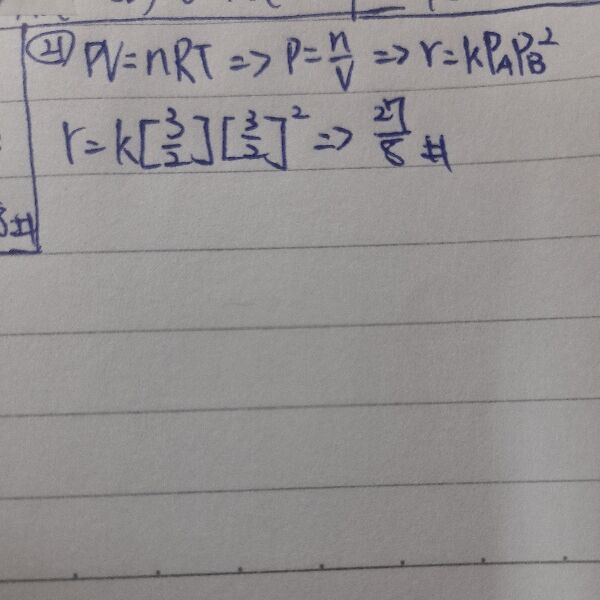 ㉑ PV=nRT => P=n/V => r=kP_A P_B^2
r=k[3/2][3/2]^2 => 27/8 #